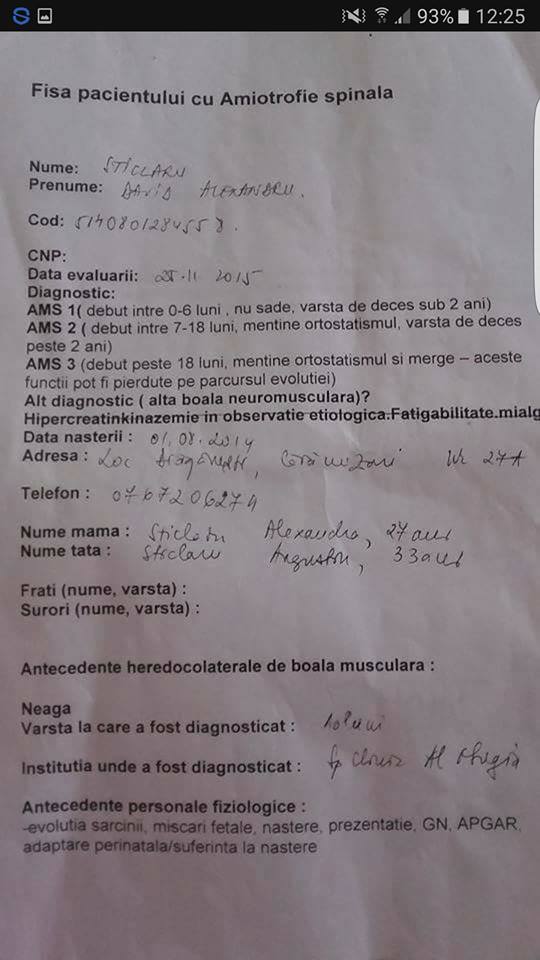 93% 12:25
Fisa pacientului cu Amiotrofie spinala
Nume: STICLARU
Prenume: DAVID ALEXANDRU.
Cod: 5140801284558.
CNP:
Data evaluarii: 25.11 2015
Diagnostic:
AMS 1( debut intre 0-6 luni , nu sade, varsta de deces sub 2 ani)
AMS 2 ( debut intre 7-18 luni, mentine ortostatismul, varsta de deces
peste 2 ani)
AMS 3 (debut peste 18 luni, mentine ortostatismul si merge – aceste
functii pot fi pierdute pe parcursul evolutiei)
Alt diagnostic ( alta boala neuromusculara)?
Hipercreatinkinazemie in observatie etiologica.Fatigabilitate.mialg
Data nasterii : 01.08.2014
Adresa : Loc Nr 27A
Telefon : 0767206274
Nume mama : Alexandra, 27 ani
Nume tata : Sticlaru 33 ani
Frati (nume, varsta) :
Surori (nume, varsta) :
Antecedente heredocolaterale de boala musculara :
Neaga
Varsta la care a fost diagnosticat : 10 luni
Institutia unde a fost diagnosticat : Sp Clinic Al Obregia
Antecedente personale fiziologice :
-evolutia sarcinii, miscari fetale, nastere, prezentatie, GN, APGAR,
adaptare perinatala/suferinta la nastere